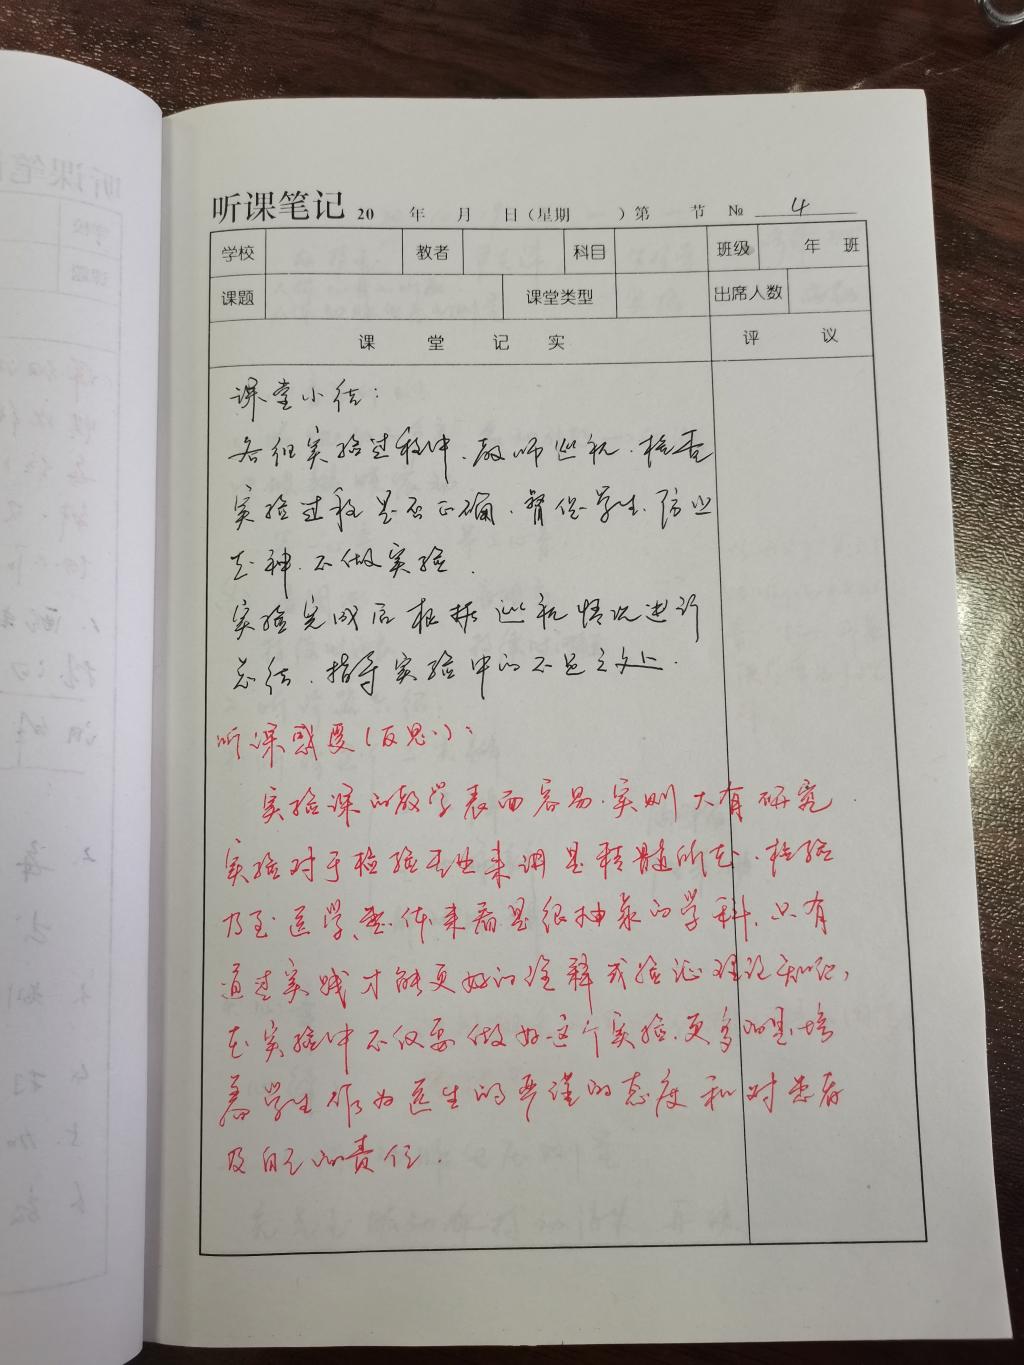 听课笔记 20 年 月 日(星期 )第 节 № 4
学校 教者 科目 班级 年 班
课题 课堂类型 出席人数
课 堂 记 实 评 议
课堂小结：
各组实验过程中、教师巡视、检查
实验过程是否正确、督促学生、防止
走神、不做实验.
实验完成后根据巡视情况进行
总结、指导实验中的不足之处.
听课感受(反思):
实验课的教学表面容易、实则大有研究.
实验对于检验专业来讲是精髓所在、检验
乃至医学、整体来看是很抽象的学科、只有
通过实践才能更好的诠释或验证理论知识,
在实验中不仅要做好这个实验、更多的是培
养学生作为医生的严谨的态度和对患者
及自己的责任.